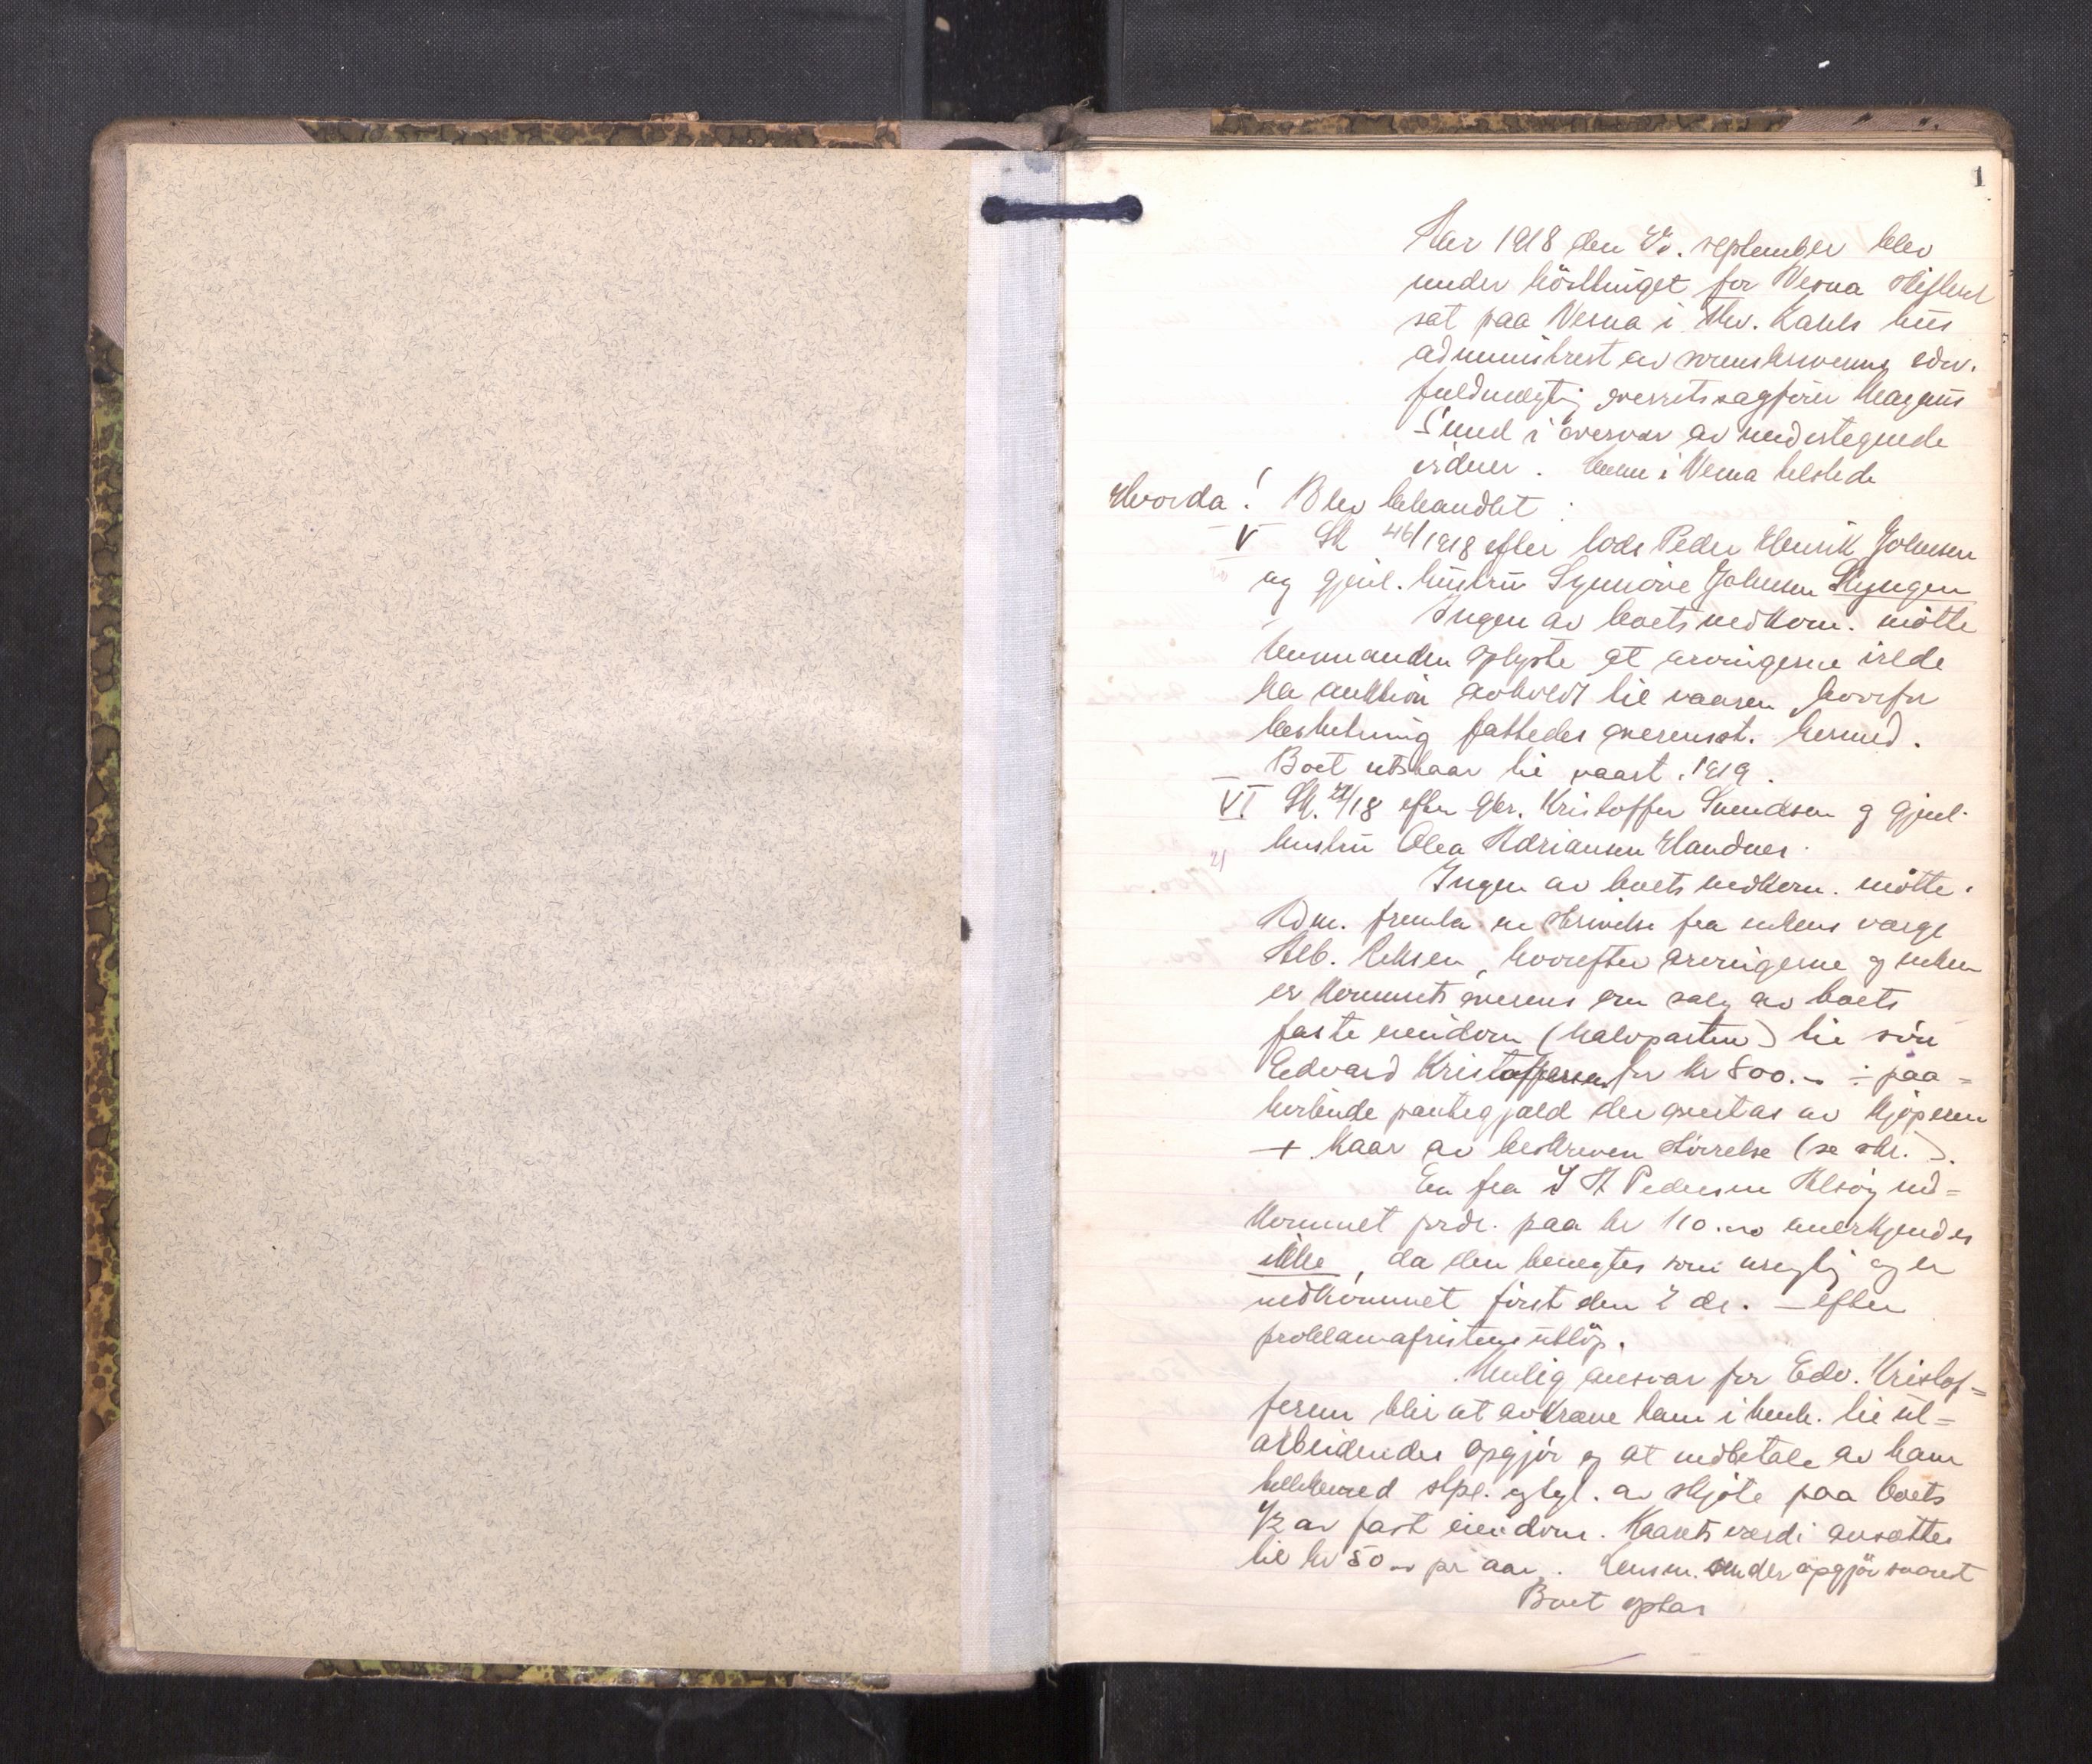 1
Aar 1918 den september blev
under hösttinget for Nesna skifteret
sat paa Nesna i Kahls hus
administrert av sorenskriverens edsv.
fuldmægtig overretssagförer Magnus
Sund i overvær av undertegnede
vidner. Lensm i Nesna tilstede
Hvorda! Blev behandlet:
V Sk 46/1918 efter lods Peder Henrik Johnsen
og gjenl. hustru Synnöve Johnsen
Ingen av boets vedkom. mötte
lensmanden oplyste at arvingerne vilde
ha auktion avholdt til vaaren, hvorfor
beslutning fattedes overensst. hermed.
Boet utstaar til vaart. 1919.
VI Sk. /18 efter gbr. Kristoffer Svendsen og gjenl.
hustru Olea Adriansen Handnes.
21
Ingen av boets vedkom. mötte.
Adm. fremla en skrivelse fra enkens værge
Alb. , hvorefter arvingerne og enken
er kommet overens om salg av boets
faste eiendom (halvparten) til sön
Edvard Kristoffersen for kr 800.- ÷ paa=
heftende pantegjæld der overtas av kjöperen
+ kaar av beskreven störrelse (se skr.).
En fra Pedersen Alsöy ind=
kommet fordr. paa kr 110.00 anerkjendes
ikke, da den benegtes som urigtig og er
indkommet först den 2 ds. - efter
proklamafristens utlöp.
Mulig ansvar for Edv. Kristof=
fersen blir at avkræve ham i henh. til ut=
arbeidendes opgjör og at indbetale av ham
tillikemed stpl. og tgl. av skjöte paa boets
1/2 av fast eiendom. Kaarets værdi ansættes
til kr 50.- pr aar. Lensm. sender opgjör snarest
Boet optas